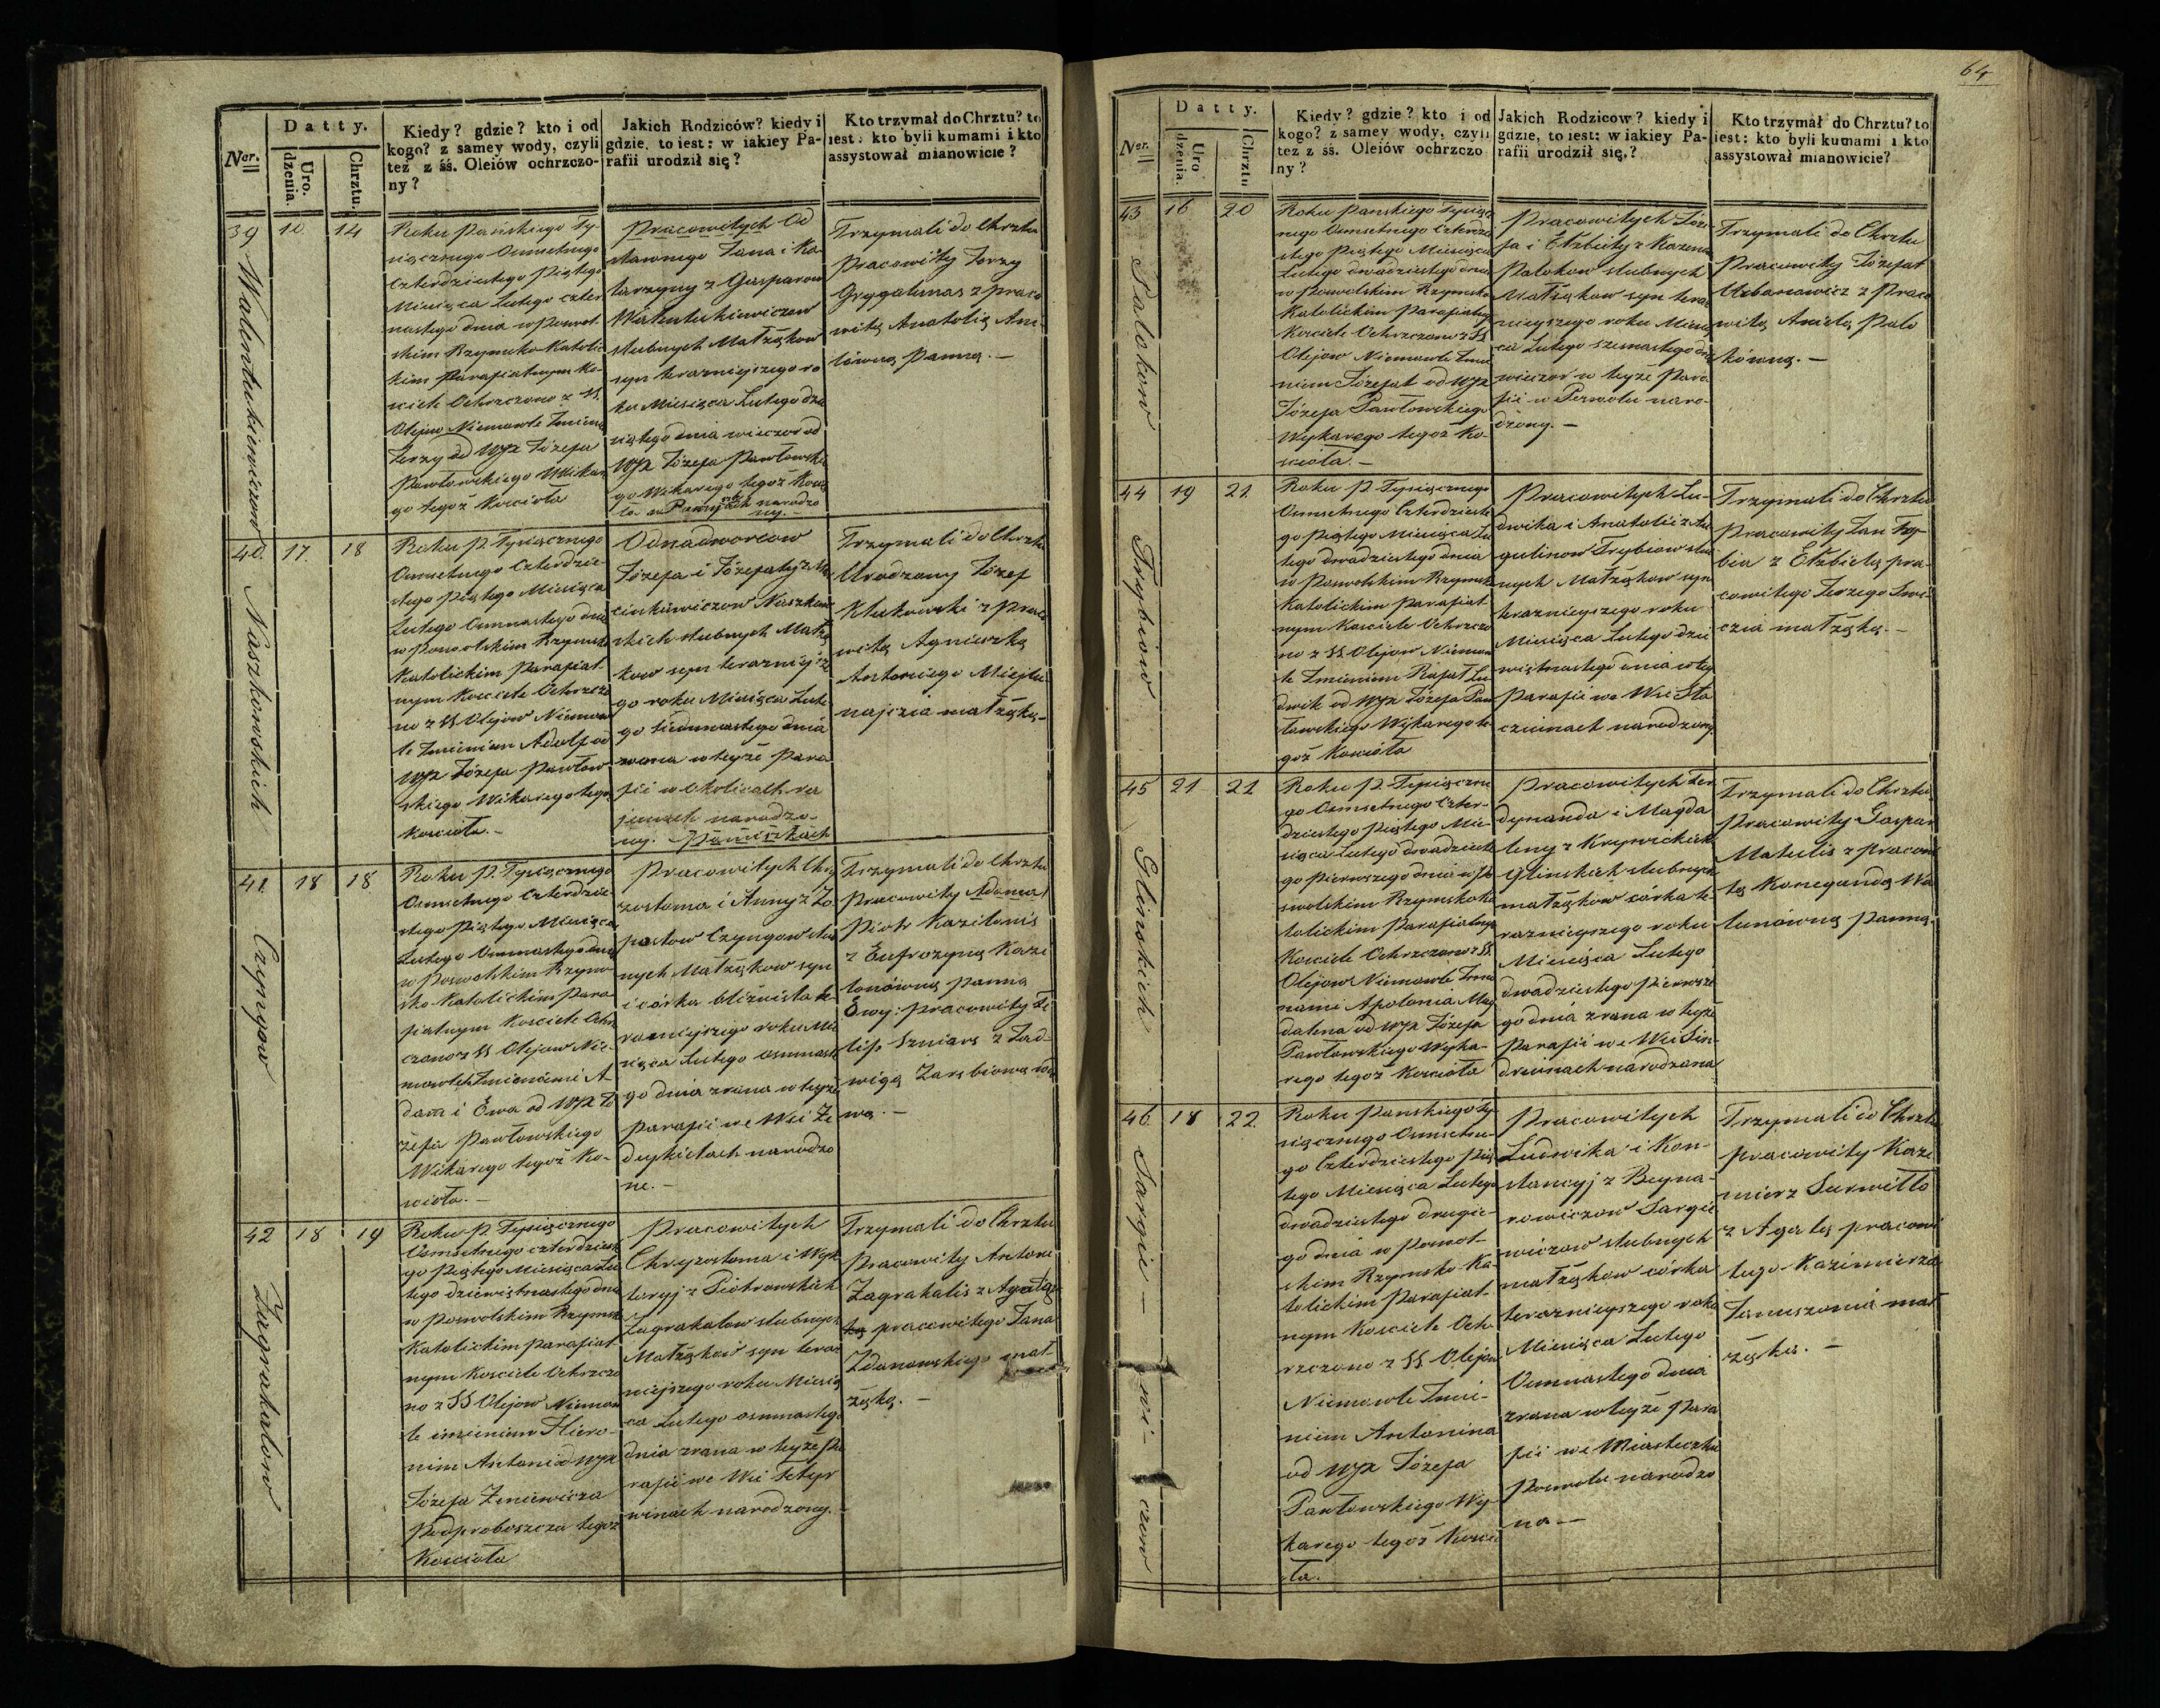 Ner.
Datty.
Uro.
dzenia.
Chrztu.
Kiedy? gdzie? kto i od
kogo? z samey wody, czyli
też z śś. Oleiów ochrzczo-
ny?
Jakich Rodziców? kiedy i
gdzie, to iest: w iakiey Pa-
rafii urodził się?
Kto trzymał do Chrztu? to
iest: kto byli kumami i kto
assystował mianowicie?
39
Walentukiewiczow
10.
14
Roku Pańskiego Ty-
siącznego Osmsetnego
Czterdziestego Piątego
Miesiąca Lutego czter
nastego dnia w Poswol
skim Rzymsko-Katolic
kim Parafialnym Ko-
sciele Ochrzczono z SS.
Olejow Niemowle Imieniem
Jerzy od WJX Józefa
Pawłowskiego Wikar
go tegoż Kościoła
Pracowitych Od
stawnego Jana i Ka-
tarzyny z Gasparow
Walentukiewiczow
slubnych Małżąkow
syn terazniejszego ro
ku Miesiąca Lutego dzie
siątego dnia wieczor od
WJX Józefa Pawłowskie
go Wikarego tegoż Kościo
narodzo
ny.-
Trzymali do Chrztu
Pracowity Jerzy
Grygalunas z praco
witą Anatolią Ani-
lówną Panną.-
40.
Naszkowskich
17.
18
Roku P. Tysiącznego
Osmsetnego Czterdzie-
stego Piątego Miesiąca
Lutego Osmnastego dnia
w Poswolskim Rzymsko
Katolickim Parafial-
nym Kosciele Ochrzczo
no z SS Olejow Niemow
le Imieniem Adolf od
WJX Józefa Pawłow
skiego Wikarego tego
Kosciola.-
Odnadworcow
Józefa i Józefaty z Mar
cinkiewiczow Naszkow
skich slubnych Małżą
kow syn terazniejsze
go roku Miesiąca Lute
go siedmnastego dnia
zrana w teyże Para
fii w okolicach
narodzo-
ny. Pamiszkach
Trzymali do Chrztu
Urodzony Józef
z Praco
witą Agnieszką
Antoniego Miejłu-
najcia małżąką.-
41.
Czyngow
18
18.
Roku P. Tysiącznego
Osmsetnego Czterdzie
stego Piątego Miesiąca
Lutego Osmnastego dnia
w Poswolskim Rzym-
sko-Katolickim Para
fialnym Kosciele Ochr
czono z SS Olejow Nie-
mowleta Imieniami A-
dam i Ewa od WJX Jó
zefa Pawłowskiego
Wikarego tegoż Ko-
scioła.-
Pracowitych Chry
zostoma i Anny z Zo-
Czyngow slub
nych Małżąkow syn
i córka bliźnista te
razniejszego roku Mie
siąca Lutego osmnaste
go dnia zrana w teyże
Parafii we Wsi Ze
dejkiclach narodzo
ne.-
Trzymali do Chrztu
Pracowity Adama)
Piotr Kazilonis
z Eufrozyną Kazi
lonówną Panną
Ewy: Pracowity Fi
lip Szniars z Jad-
wigą Zarębiową wdo
wą.-
42
Zagrakalow
18
19
Roku P. Tysiącznego
Osmsetnego czterdzieste
go Piątego Miesiąca Lu
tego dziewiętnastego dnia
w Poswolskim Rzymsko
Katolickim Parafial
nym Kosciele Ochrzczo
no z SS Olejow Niemow
le imieniem Hiero-
nim Antoni od WJX
Józefa Zmiewicza
Podproboszcza tegoż
Kościoła
Pracowitych
Chryzostoma i Wyk
toryj z Piotrowskich
Zagrakalow slubnych
Małżąkow syn teraz
niejszego roku Miesią
ca Lutego osmnastego
dnia zrana w teyże Pa
rafii we Wsi Sztyr
winach narodzony.-
Trzymali do Chrztu
Pracowity Antoni
Zagrakalis z Agatą
pracowitego Jana
Zdanowskiego mał
żąką.-
64
Ner.
Datty.
Uro
dzenia.
Chrztu
Kiedy? gdzie? kto i od
kogo? z samey wody, czyli
też z śś. Oleiów ochrzczo
ny?
Jakich Rodziców? kiedy i
gdzie, to iest: w iakiey Pa-
rafii urodził się,?
Kto trzymał do Chrztu? to
iest: kto byli kumami i kto
assystował mianowicie?
43
Palokow
16
20
Roku Panskiego Tysiąc
znego Osmsetnego Czterdzie
stego Piątego Miesiąca
Lutego dwadziestego dnia
w Poswolskim Rzymsko
Katolickim Parafialnym
Kosciele Ochrzczono z SS
Olejow Niemowle Imie
niem Józefat od WJX
Józefa Pawłowskiego
Wykarego tegoż Ko-
scioła.-
Pracowitych Józe-
fa i Elżbiety z Kazenow
Palokow slubnych
Małżąkow syn teraz
nieyszego roku Miesią
ca Lutego szesnastego dnia
wieczor w teyże Para
fii w Poswolu naro-
dzony.-
Trzymali do Chrztu
Pracowity Józefat
Urbanowicz z Praco
witą Anielą Palo
kówną.-
44
Trybiow
19
21.
Roku P. Tysiącznego
Osmsetnego Czterdzieste
go Piątego Miesiąca Lu
tego dwadziestego dnia
w Poswolskim Rzymsko
Katolickim Parafial
nym Kosciele Ochrzczo
no z SS. Olejow Niemow
le Imieniem Rafał Lu
dwik od WJX Józefa Paw
łowskiego Wykarego te-
goż Kościoła
Pracowitych Lu-
dwika i Anatolii z Au
gulinow Trybiow slub
nych Małżąkow syn
terazniejszego roku
Miesiąca Lutego dzie
więtnastego dnia w tey
Parafii we Wsi Sta
cziunach narodzony
Trzymali do Chrztu
Pracowity Jan Try-
bia z Elżbietą pra-
cowitego Jerzego
małżąką.-
45
Glinskich
21
21
Roku P. Tysiączne
go Osmsetnego Czter-
dziestego Piątego Mie-
siąca Lutego dwadzieste
go pierwszego dnia w Po
swolskim Rzymsko Ka
tolickim Parafialnym
Kosciele Ochrzczono z SS.
Olejow Niemowle Imio
nami Apolonia Mag
dalena od WJX Józefa
Pawłowskiego Wyka-
rego tegoż Kościoła
Pracowitych Fer
dynanda i Magda
leny z Krzywickich
Glinskich slubnych
małżąków córka te-
razniejszego roku
Miesiąca Lutego
dwadziestego pierwsze
go dnia zrana w teyże
Parafii we Wsi Sin-
driunach narodzona
Trzymali do Chrztu
Pracowity Gaspar
Matulis z Pracowi
tą Konegundą Wa
lunówną Panną.
46.
Sargie-wi-czow
18
22.
Roku Panskiego Ty
siącznego Osmsetne-
go Czterdziestego Pią
tego Miesiąca Lutego
dwadziestego drugie-
go dnia w Poswol-
skim Rzymsko-Ka-
tolickim Parafial-
nym Kosciele Och-
rzczono z SS Olejow
Niemowle Imie-
niem Antonina
od WJX Józefa
Pawłowskiego Wy-
karego tegoż Koscio
ła.
Pracowitych
Ludwika i Kon-
stancyj z Beyna-
rowiczow Sargie
wiczow slubnych
małżąkow córka
terazniejszego roku
Miesiąca Lutego
Osmnastego dnia
zrana w teyże Para
fii we Miasteczku
Poswolu narodzo
na-
Trzymali do Chrztu
Pracowity Kazi
mierz Surwiłło
z Agatą pracowi
tego Kazimierza
Januszonia mał
żąką.-